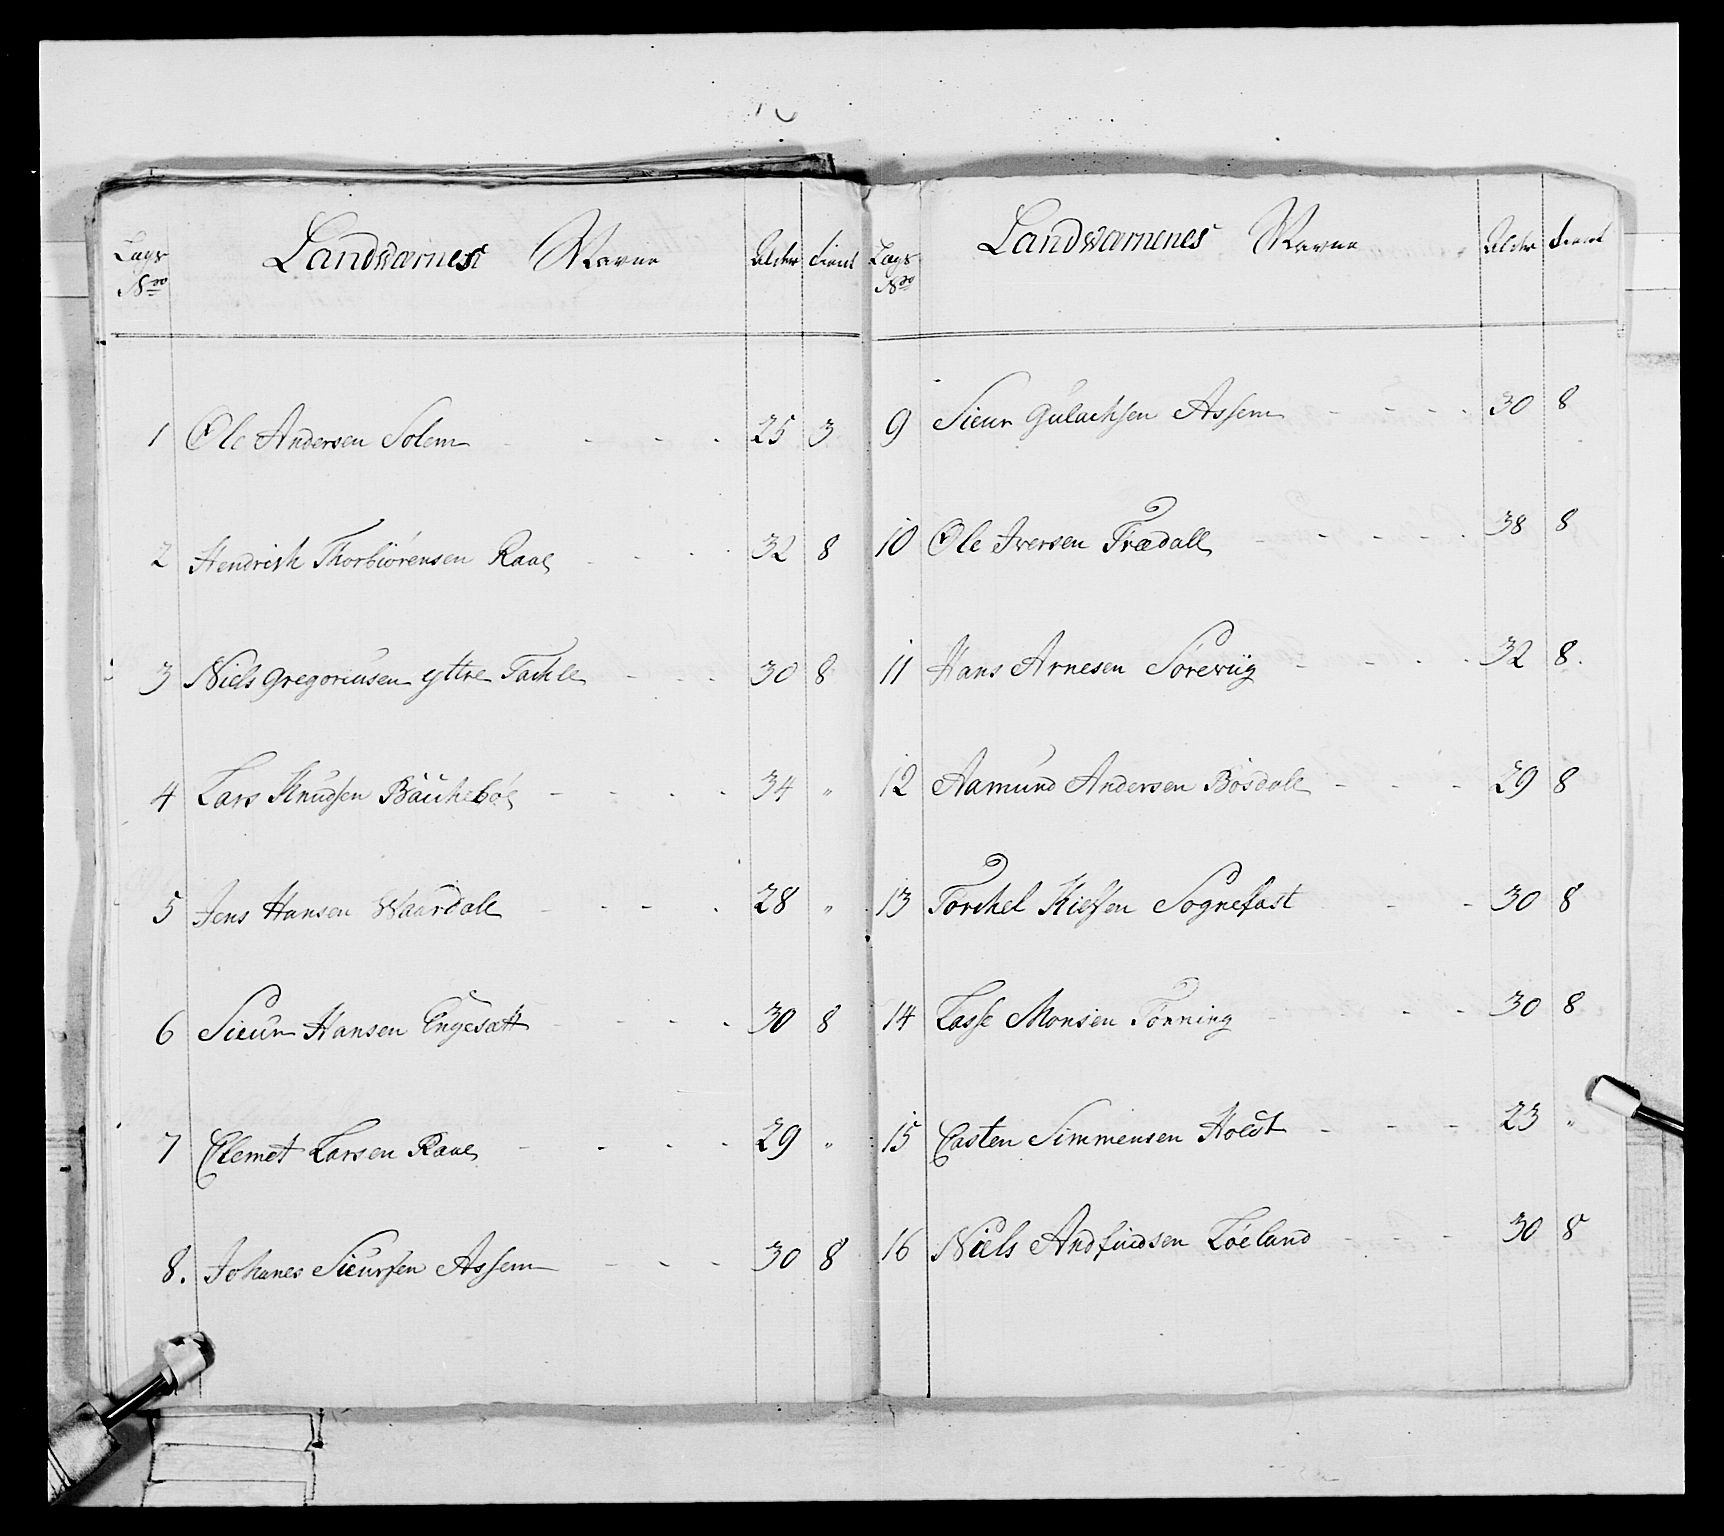 Lægs Landværnes Navne Alder tient
No
1 Ole Andersen Solem 25 3
2 Hendrich Thorbiörensen Raae 32 8
3 Niels Gregoriusen yttre Tachle 30 8
4 Lars Knudsen Bächeböe 34 "
5 Jens Hansen Waardall 28 "
6 Sieur Hansen Engesætt 30 8
7 Clemet Larsen Raae 29 "
8. Johanes Sieursen Assem 30 8
Lægs Landværnenes Navne Alder tient
No
9 Sieur Gulachsen Assem 30 8
10 Ole Iversen Trædall 38 8
11 Hans Arnesen Söreviig 32 8.
12 Aamund Andersen Bösdall 29 8
13 Torchel Kielsen Sognefast 30 8
14 Lasse Monsen Tönning 30 8
15 Casten Simmensen Holdt 23 "
16 Niels Andfindsen Löeland 30 8